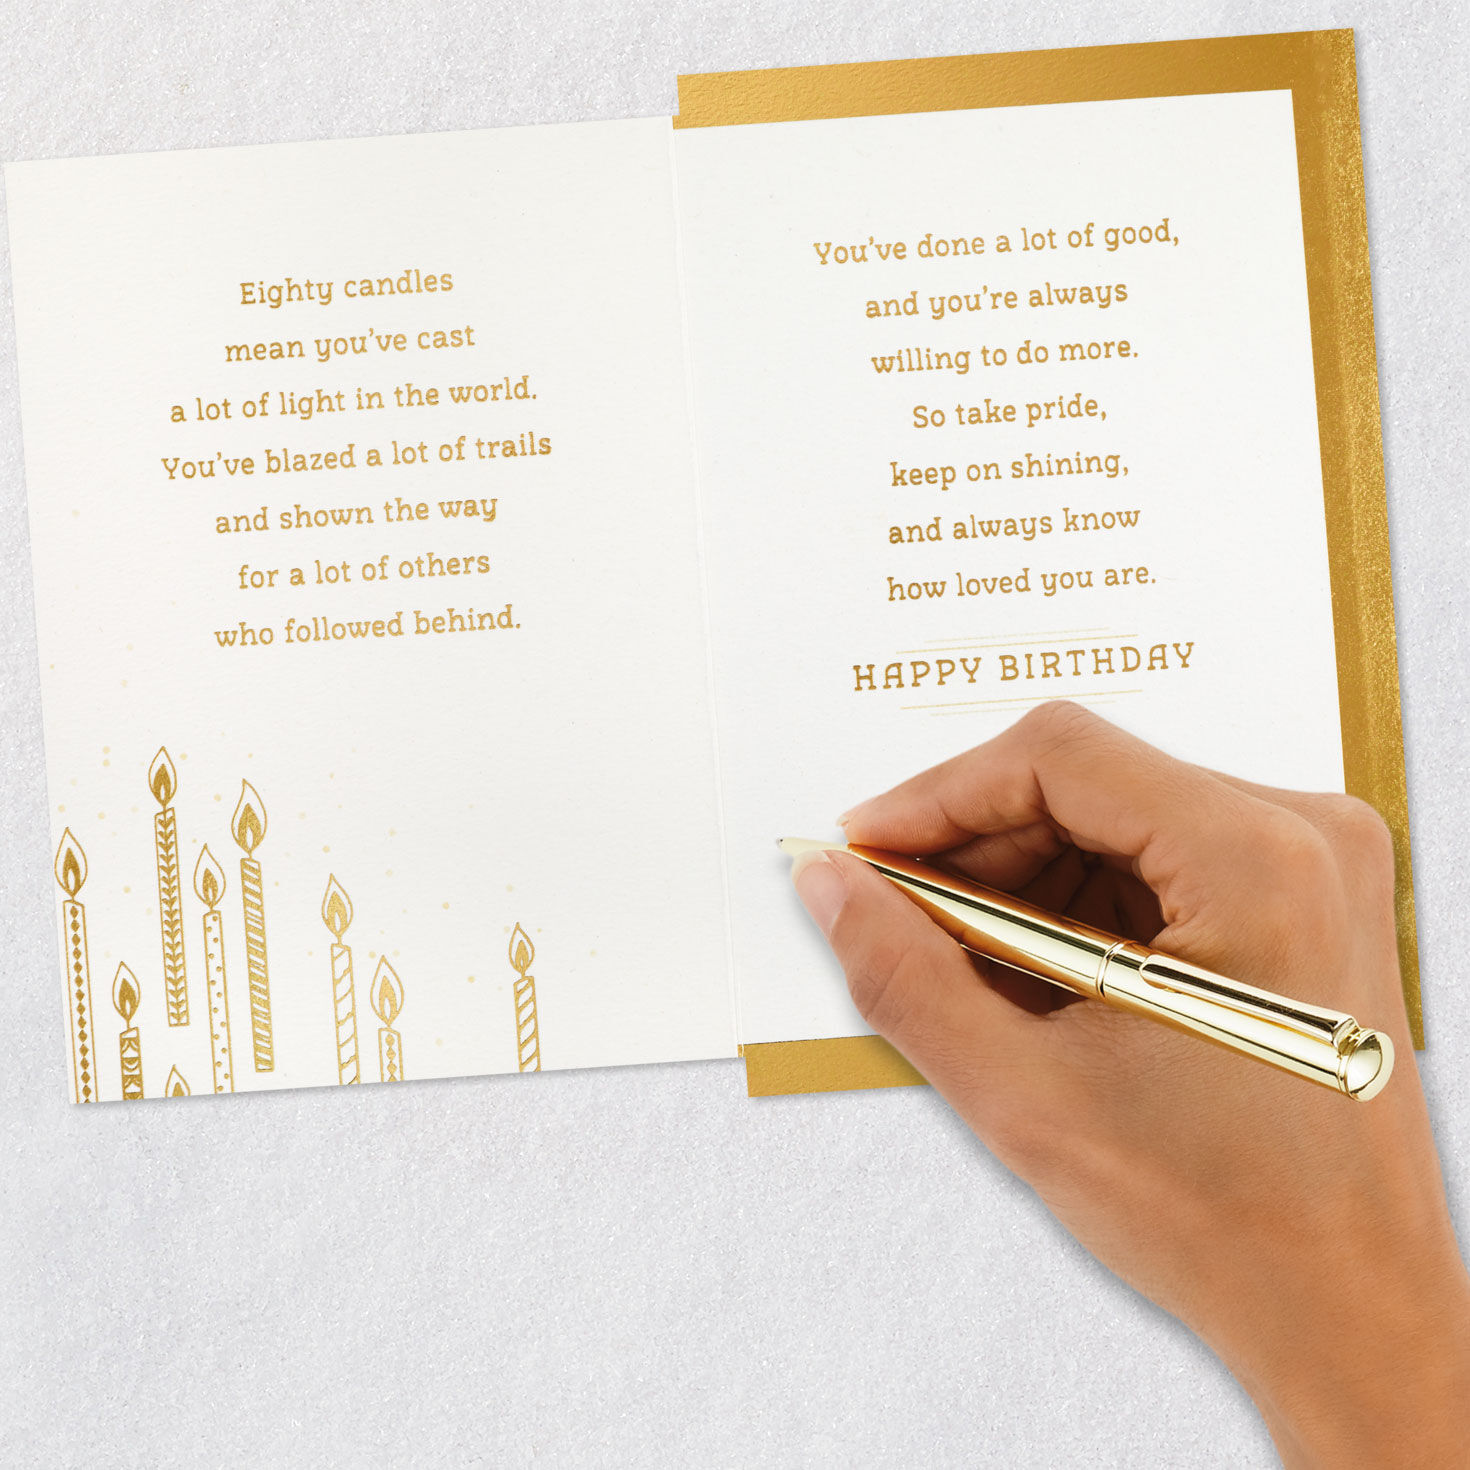 Eighty candles
mean you've cast
a lot of light in the world.
You've blazed a lot of trails
and shown the way
for a lot of others
who followed behind.
You've done a lot of good,
and you're always
willing to do more.
So take pride,
keep on shining,
and always know
how loved you are.
HAPPY BIRTHDAY